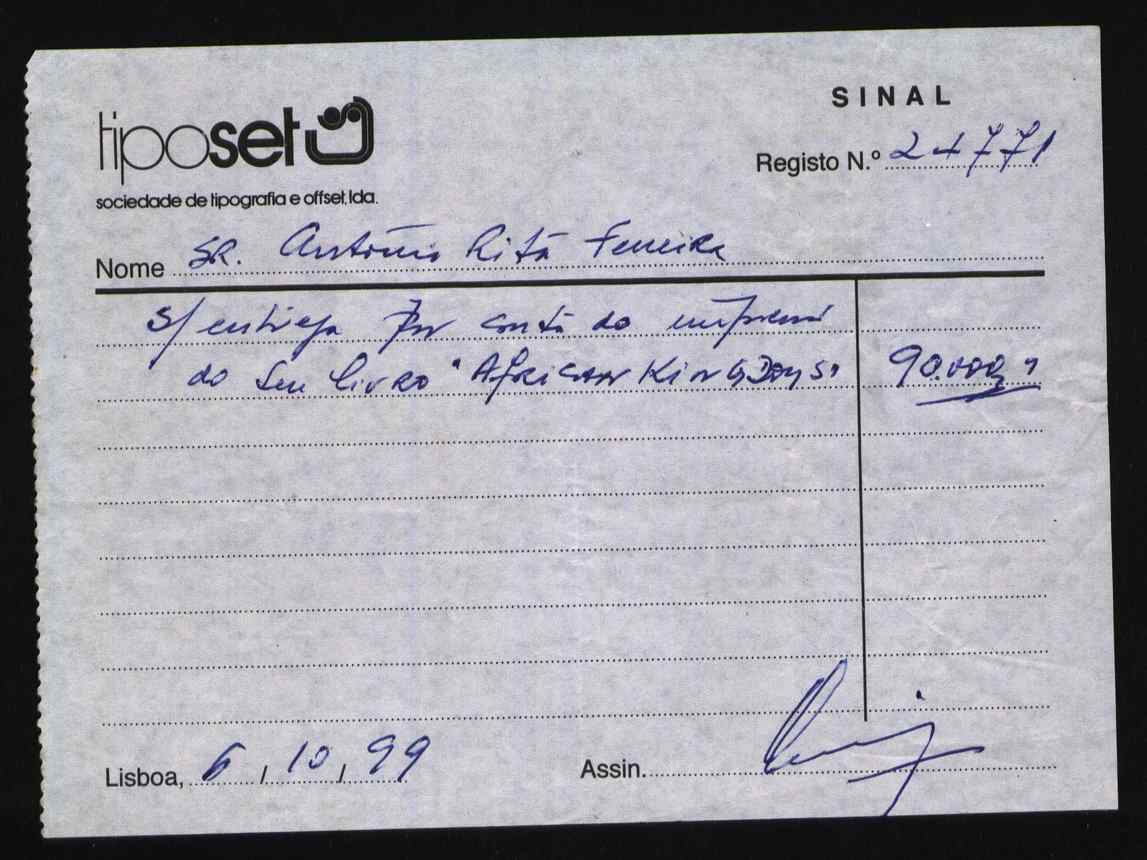 tiposet
sociedade de tipografia e offset, lda.
SINAL
Registo N.º 24771
Nome SR. António Rita Ferreira
S/ entrega por conta do
do seu livro "African Kingdoms" 90.000
Lisboa, 6 / 10 / 99
Assin.